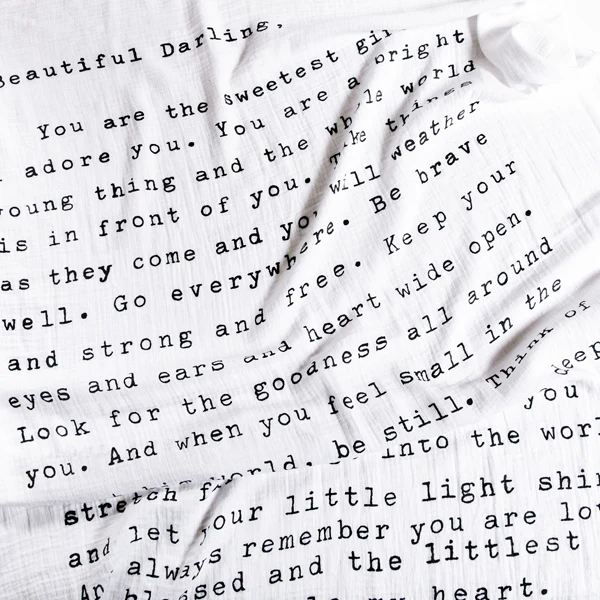 Beautiful Darling,
You are the sweetest
adore you. You are a bright
young thing and the whole world
is in front of you. Take things
as they come and you will weather
well. Go everywhere. Be brave
and strong and free. Keep your
eyes and ears and heart wide open.
Look for the goodness all around
you. And when you feel small in the
world, be still. Think of
stretch deep
into the
and let your little light
always remember you are
and the littlest
heart.